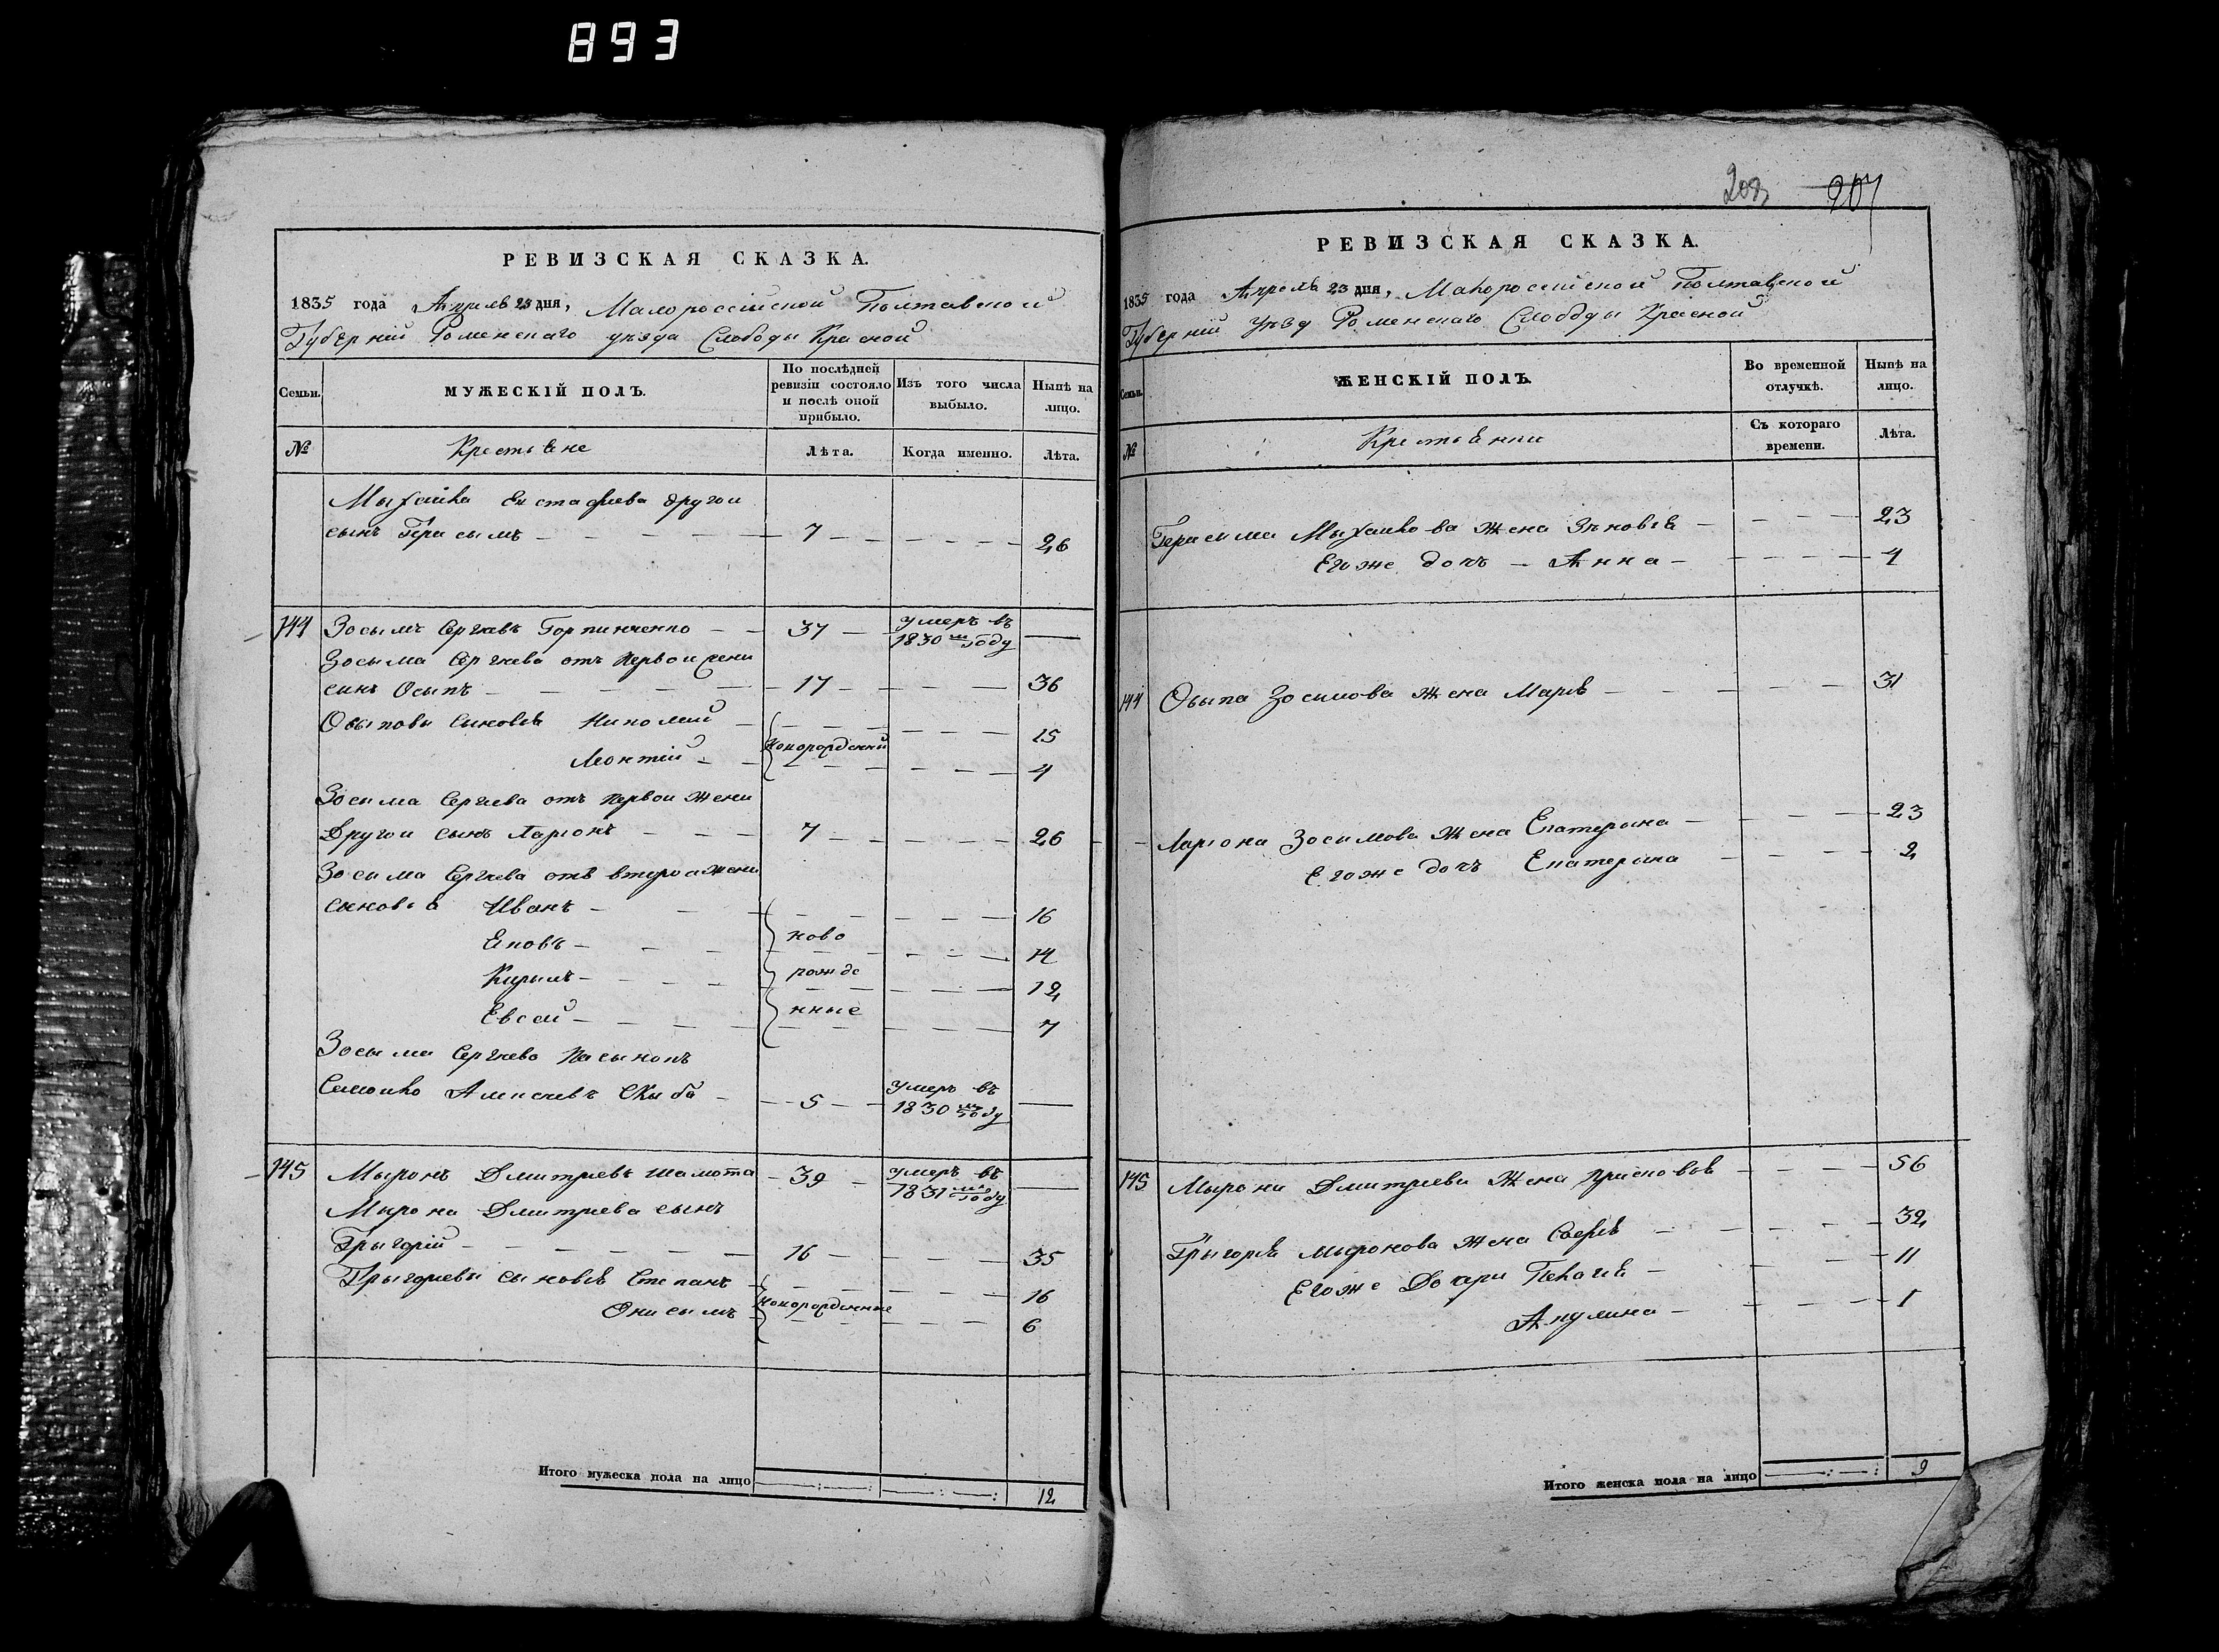 893
РЕВИЗСКАЯ СКАЗКА.
1835 года Апреля 23 дня, Малороссійской Полтавской
Губерніи Роменскаго уезда Слободы Красной
Семьи. МУЖЕСКІЙ ПОЛЪ. По послѣдней ревизіи состояло и послѣ оной прибыло. Изъ того числа выбыло. Нынѣ на лицо.
№ Крестьяне Лѣта. Когда именно. Лѣта.
Мыхайла Евстафиева другои
сынъ Герасымъ 7 26
144 Зосымъ Сергѣевъ Горпинченко 37 умеръ въ 1830 м году
Зосыма Сергѣева отъ первои жени
синъ Осыпъ 17 36
Осыповы сыновья Николай 15
новорожденнии
Леонтій 4
Зосима Сергѣева отъ первои жени
Другои сынъ Ларіонъ 7 26
Зосима Сергѣева отъ второи жени
сыновья Иванъ 16
ново
Яковъ 14
рожде
Кирылъ 12
нные
Евсей 7
Зосыма Сергѣева пасынокъ
Самойло Алексѣевъ Скыба 5 умеръ въ 1830 м году
145 Мыронъ Дмитріевъ Шамота 39 умеръ въ 1831 м году
Мырона Дмитріева сынъ
Грыгорій 16 35
Грыгориевы сыновья Степанъ 16
новорожденные
Онисымъ 6
Итого мужеска пола на лицо 12
208 207
РЕВИЗСКАЯ СКАЗКА.
1835 года Апреля 23 дня, Малороссійской Полтавской
Губерніи уезд Роменскаго Слободы Красной
Семьи. ЖЕНСКІЙ ПОЛЪ. Во временной отлучкѣ. Нынѣ на лицо.
№ Крестьянки Съ котораго времени. Лѣта.
Герасима Мыхайлова жена Зѣновія 23
Егоже дочъ Анна 4
144 Осыпа Зосимова жена Марія 31
Ларіона Зосимова жена Екатерына 23
Егоже дочъ Екатерына 2
145 Мырона Дмитриева жена 56
Грыгорія Мыронова жена Софія 32
Егоже Дочери Пелагія 11
Акулина 1
Итого женска пола на лицо 9